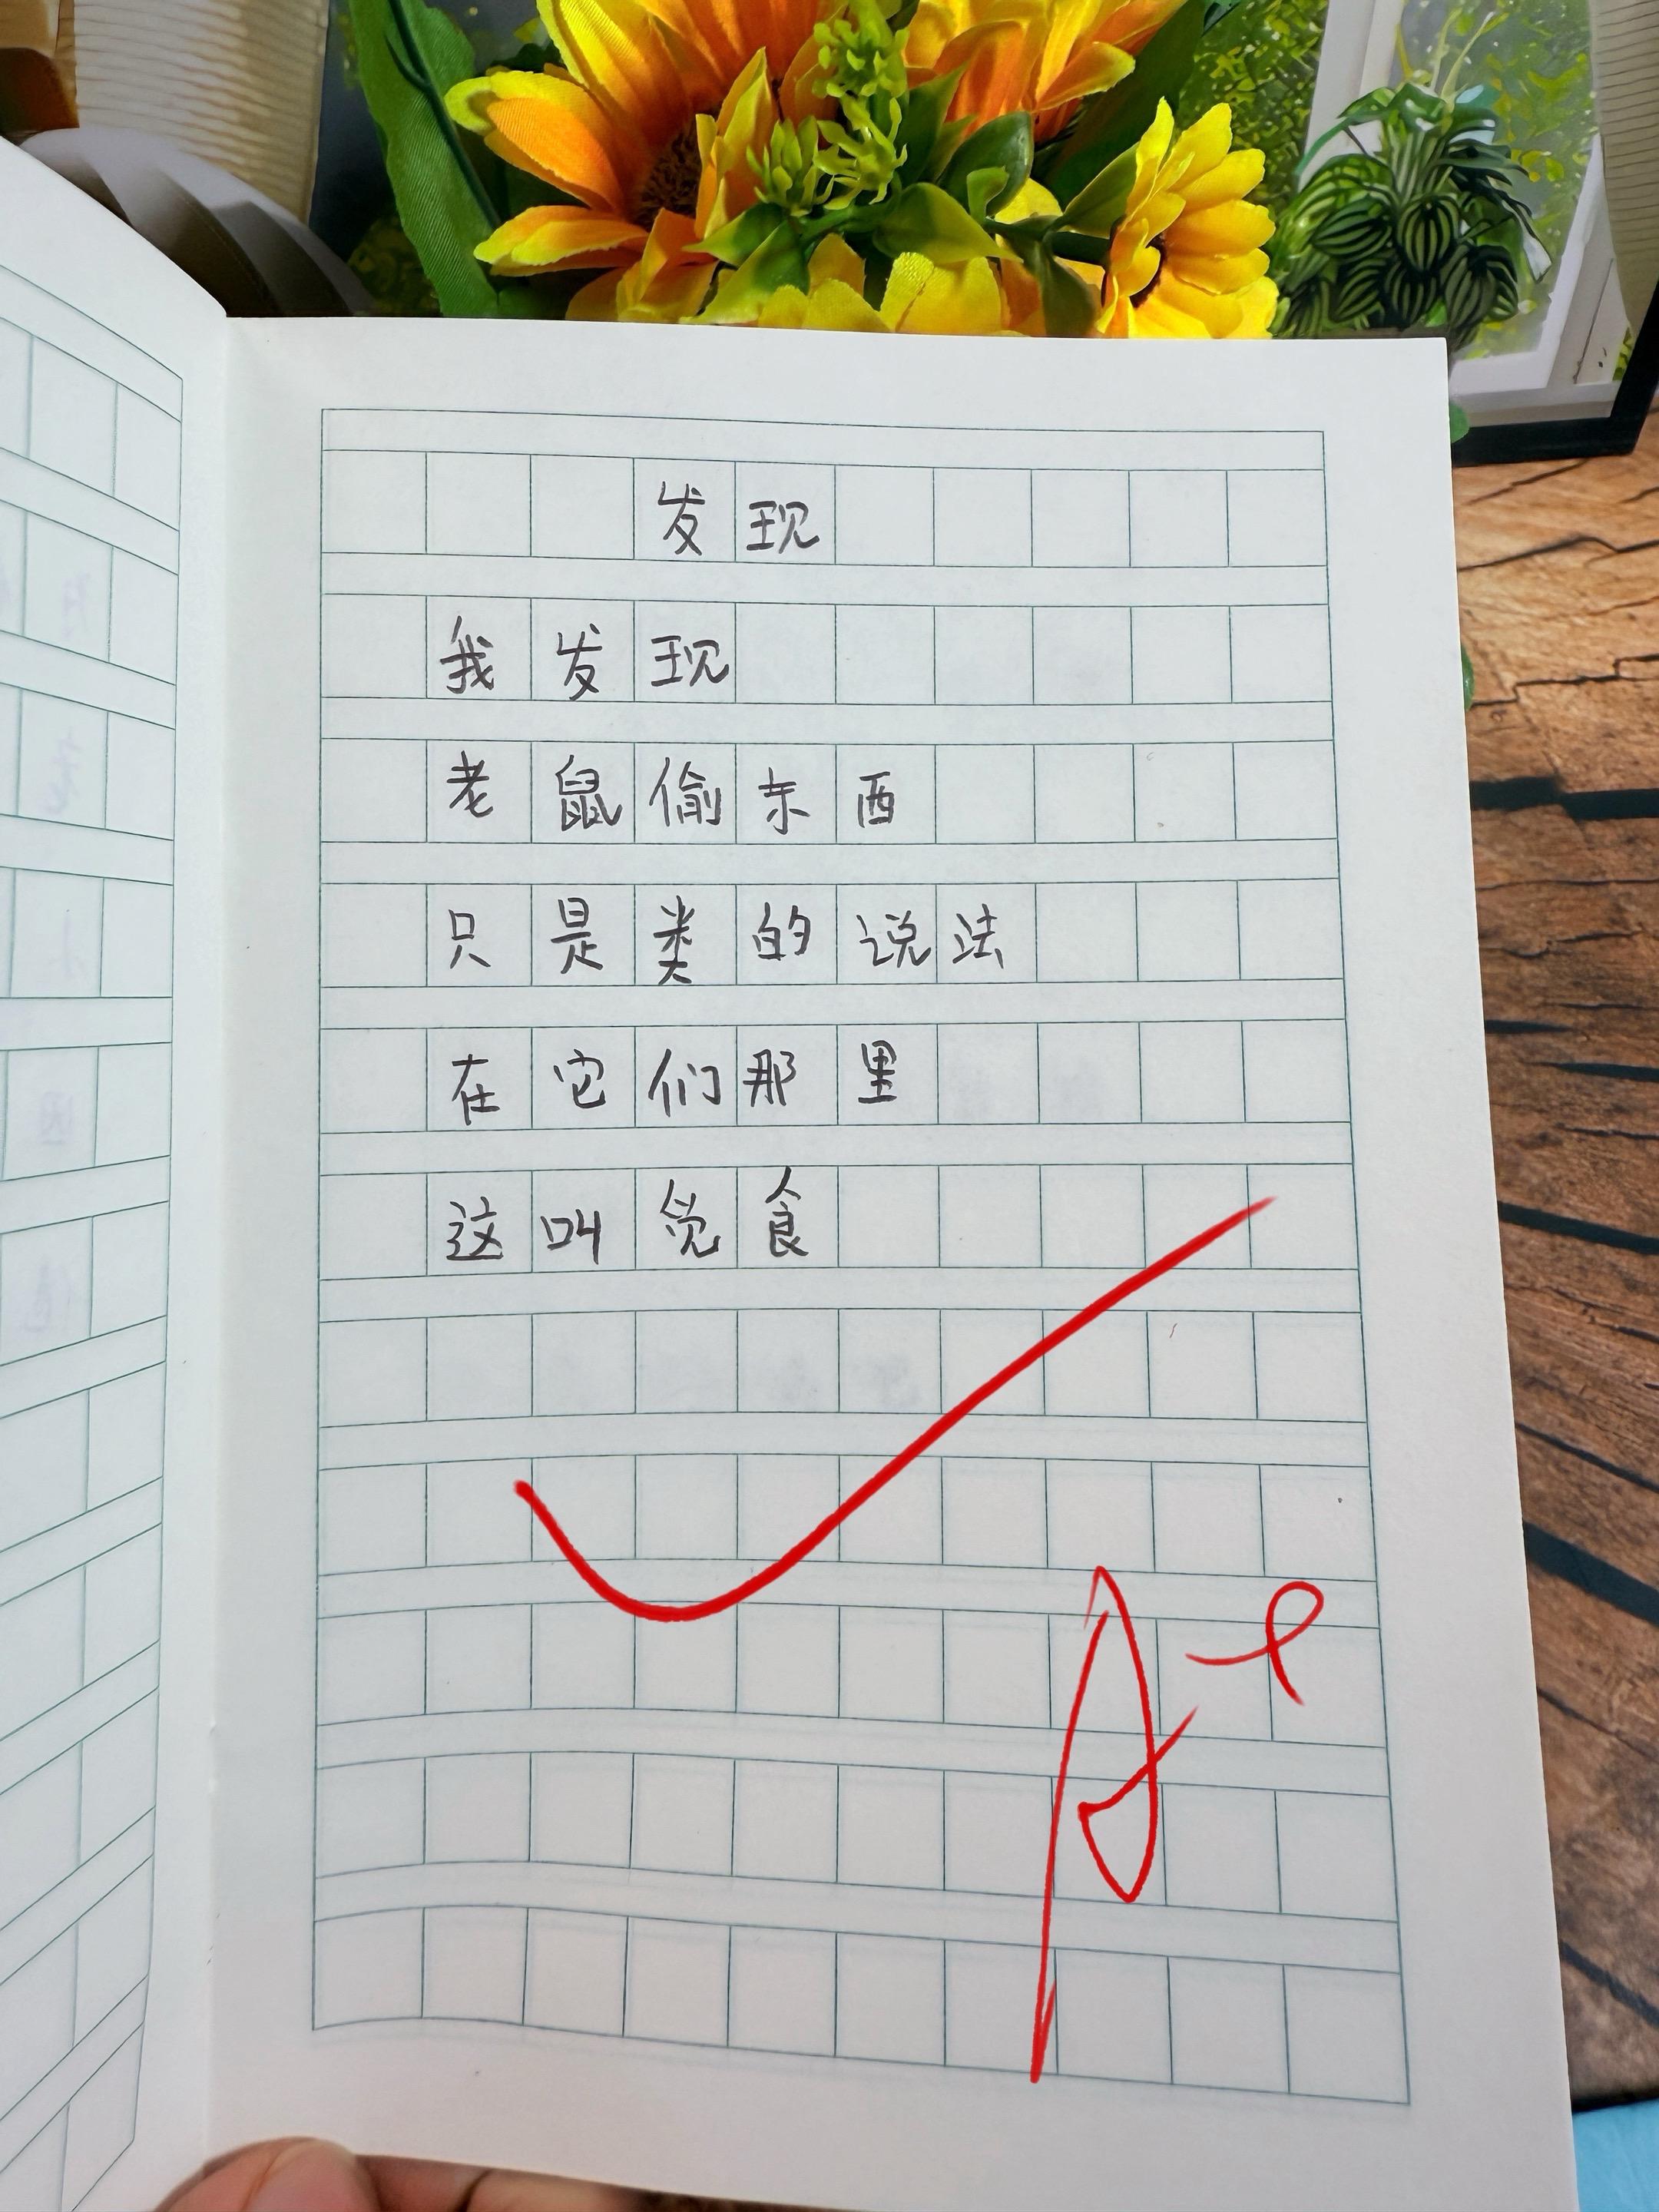 发现
我发现
老鼠偷东西
只是类的说法
在它们那里
这叫觉食
A+